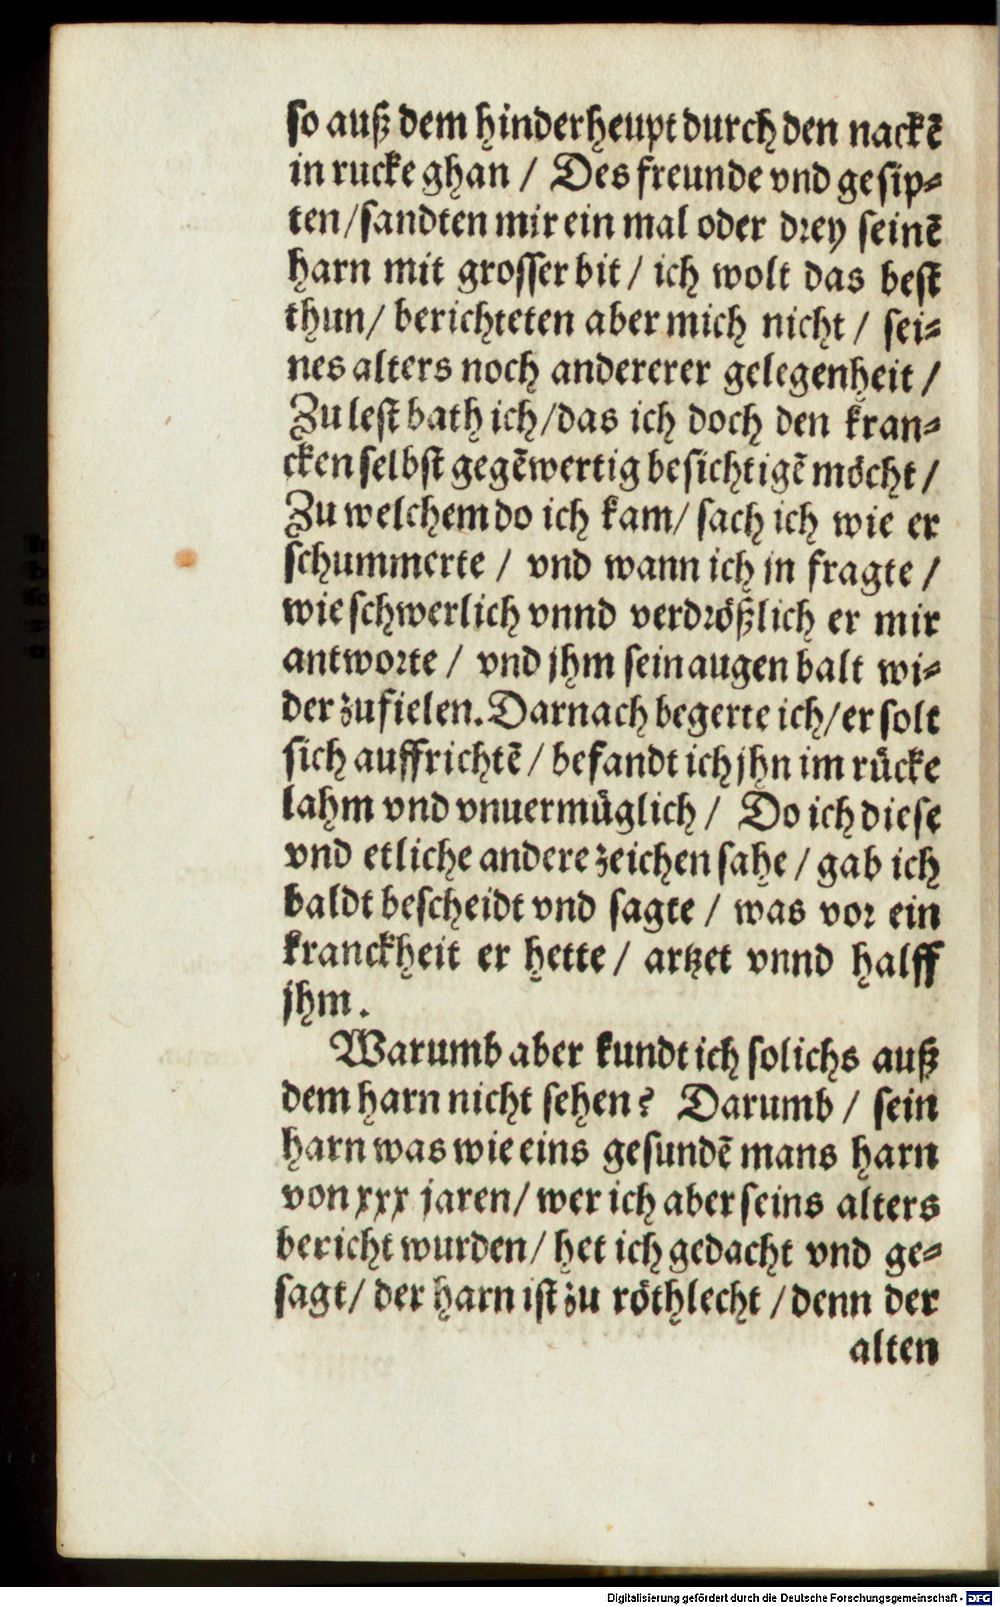 so auß dem hinderheupt durch den nackē
in rucke ghan / Des freunde vnd gesip⸗
ten/sandten mir ein mal oder drey seinē
harn mit grosser bit / ich wolt das best
thun/ berichteten aber mich nicht / sei⸗
nes alters noch andererer gelegenheit /
Zu lest bath ich/das ich doch den kran⸗
cken selbst gegēwertig besichtigē möcht /
Zu welchem do ich kam/ sach ich wie er
schummerte / vnd wann ich jn fragte /
wie schwerlich vnnd verdrößlich er mir
antworte / vnd jhm sein augen balt wi⸗
der zufielen. Darnach begerte ich/er solt
sich auffrichtē / befandt ich jhn im rücke
lahm vnd vnuermüglich / Do ich diese
vnd etliche andere zeichen sahe / gab ich
baldt bescheidt vnd sagte / was vor ein
kranckheit er hette / artzet vnnd halff
jhm.
Warumb aber kundt ich solichs auß
dem harn nicht sehen? Darumb / sein
harn was wie eins gesundē mans harn
von xxx jaren/ wer ich aber seins alters
bericht wurden/ het ich gedacht vnd ge⸗
sagt/ der harn ist zu röthlecht /denn der
alten
Digitalisierung gefördert durch die Deutsche Forschungsgemeinschaft - DFG